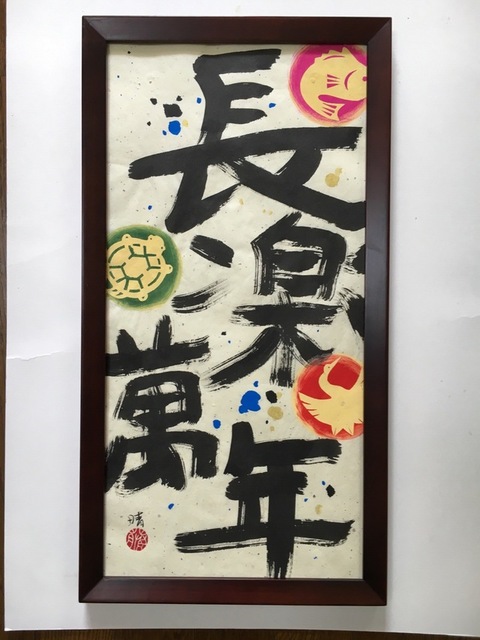 長楽萬年
晴